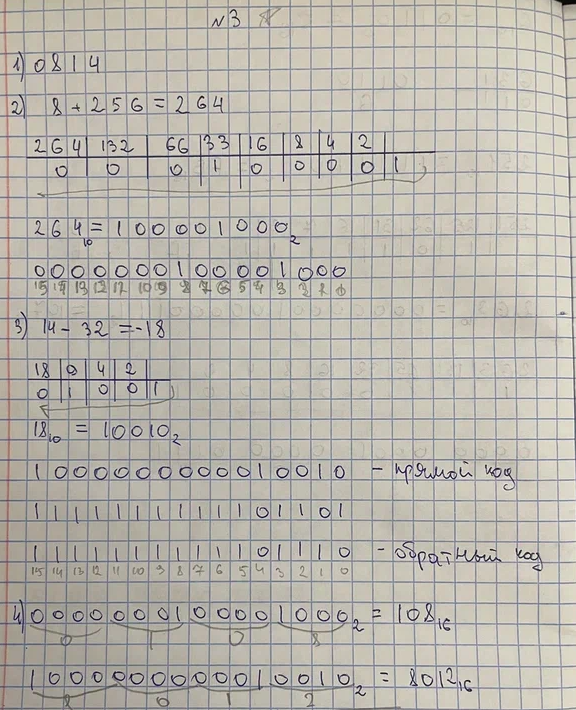 №3
1) 0814
2) 8 + 256 = 264
264 132 66 33 16 8 4 2
0 0 0 1 0 0 0 0 1
264₁₀ = 100001000₂
0000000100001000
15 14 13 12 11 10 9 8 7 6 5 4 3 2 1 0
3) 14 - 32 = -18
18 9 4 2
0 1 0 0 1
18₁₀ = 10010₂
1000000000010010 - прямой код
1111111111101101
1111111111101110 - обратный код
15 14 13 12 11 10 9 8 7 6 5 4 3 2 1 0
4) 0000000100001000₂ = 108₁₆
0 1 0 8
1000000000010010₂ = 8012₁₆
8 0 1 2